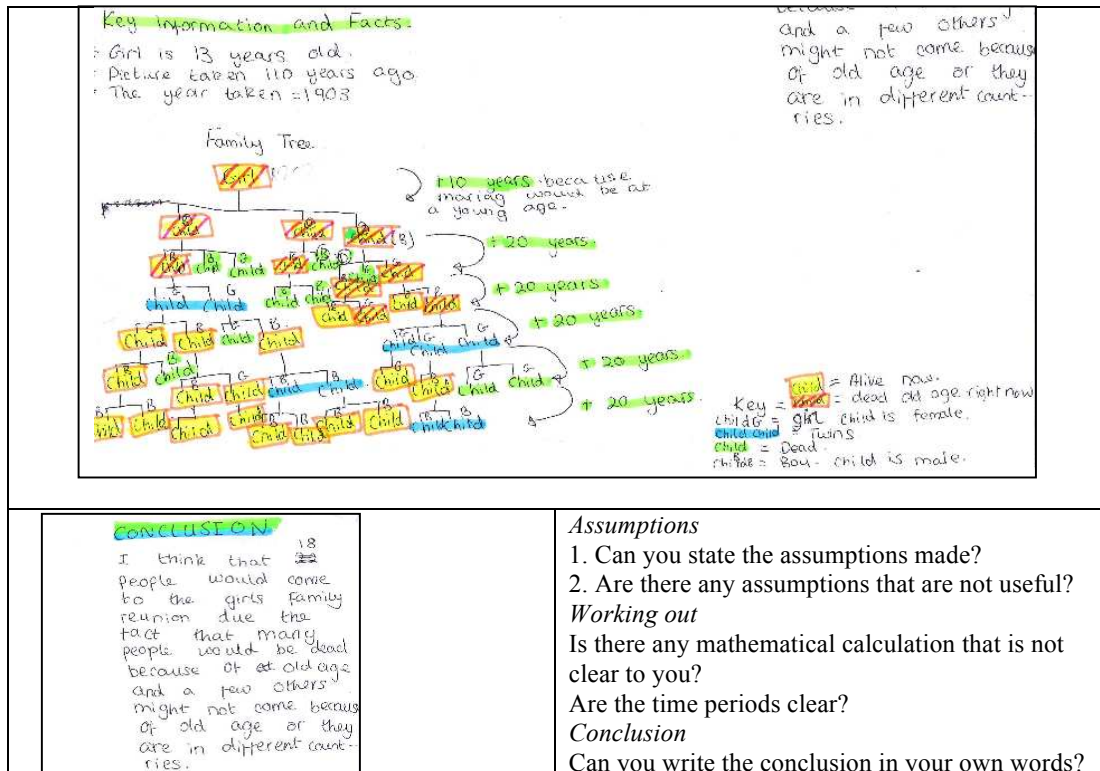 Key Information and Facts.
Girl is 13 years old.
Picture taken 110 years ago
The year taken = 1903
and a few others
might not come because
of old age or they
are in different count-
ries.
Family Tree
Girl
+10 years because
mariag would be at
a young age.
Child Child Child (B)
+ 20 years.
Child Child Child Child Child Child
+ 20 years.
Child Child Child Child Child Child Child Child
+ 20 years.
Child Child Child Child Child Child Child
+ 20 years.
Child Child Child Child Child Child Child Child Child Child
+ 20 years.
Child Child Child Child Child Child Child Child Child Child
Child = Alive now.
Key = = dead old age right now
child G = girl child is female.
Child Child = Twins
Child = Dead.
Child B = Boy - child is male.
CONCLUSION
18
I think that
people would come
to the girls family
reunion due the
fact that many
people would be dead
because of old age
and a few others
might not come becaus
of old age or they
are in different count-
ries.
Assumptions
1. Can you state the assumptions made?
2. Are there any assumptions that are not useful?
Working out
Is there any mathematical calculation that is not
clear to you?
Are the time periods clear?
Conclusion
Can you write the conclusion in your own words?